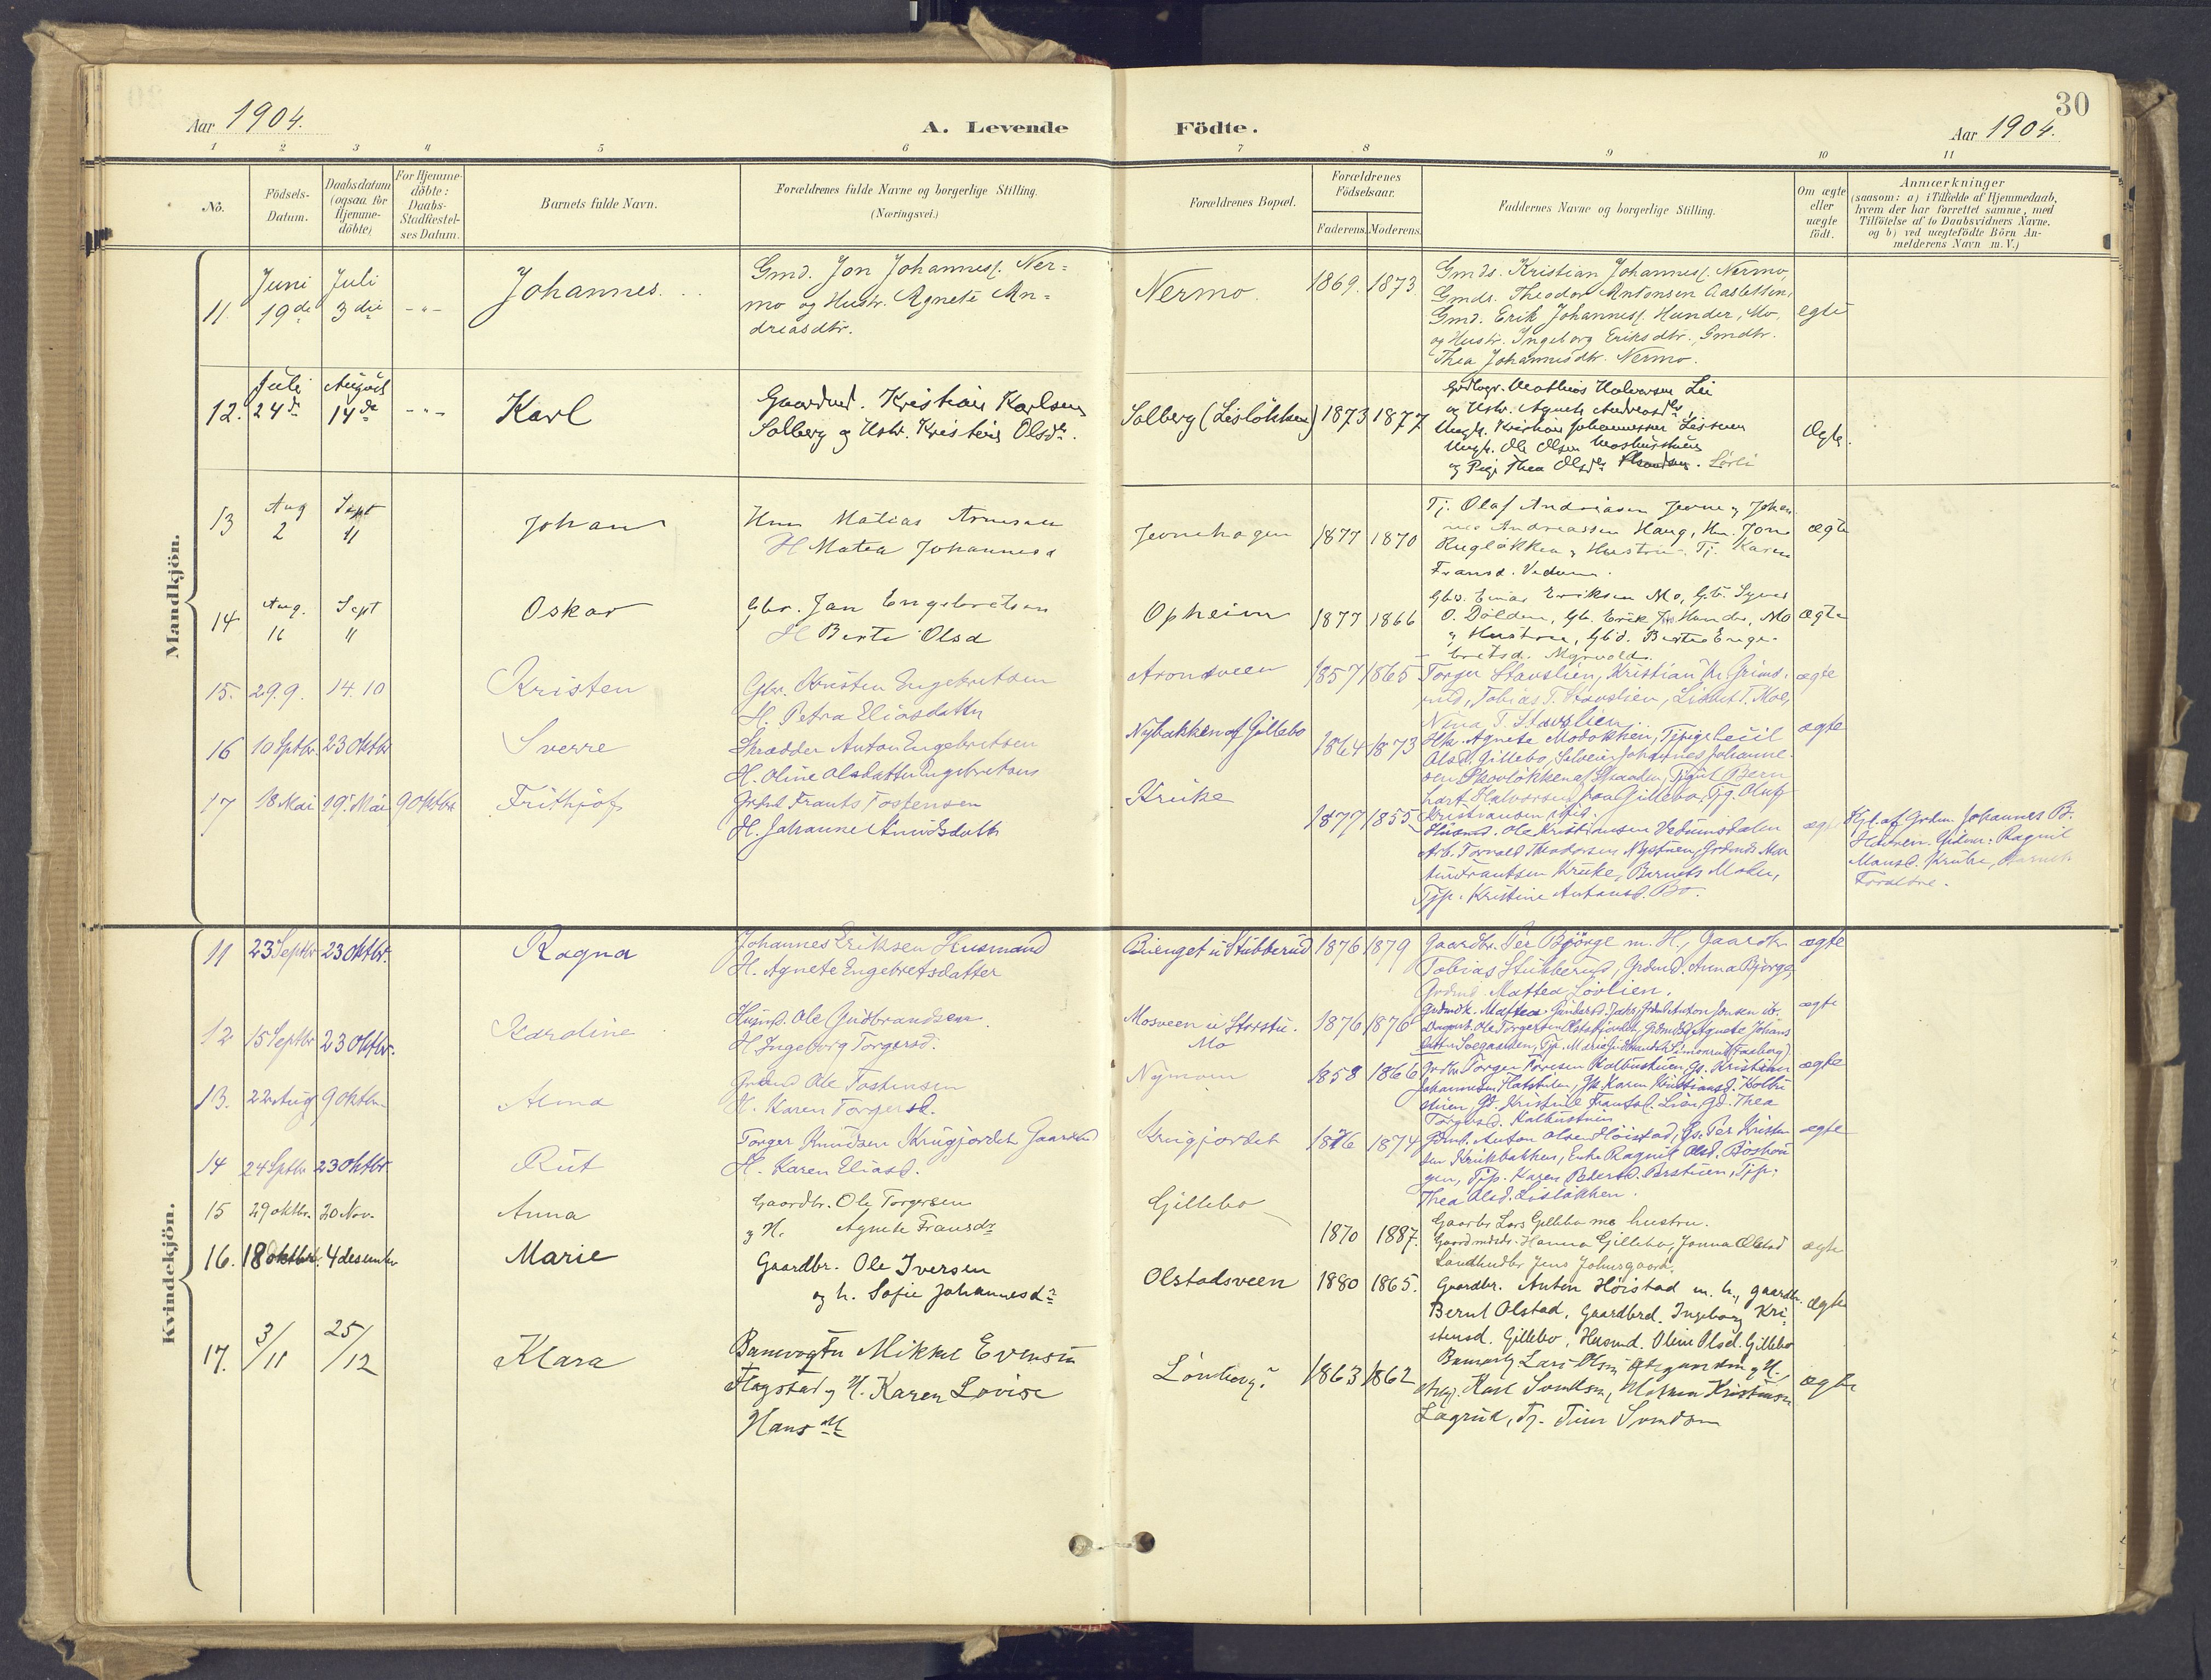 Aar 1904.
A. Levende Födte.
30
Aar 1904.
1 2 3 4 5 6 7 8 9 10 11
No.
Födsels-
Datum.
Daabsdatum
(ogsaa for
Hjemme-
döbte)
For Hjemme-
döbte:
Daabs-
Stadfæstel-
ses Datum.
Barnets fulde Navn.
Forældrenes fulde Navne og borgerlige Stilling.
(Næringsvei.)
Forældrenes Bopæl.
Forældrenes
Födselsaar.
Faderens. Moderens.
Faddernes Navne og borgerlige Stilling.
Om ægte
eller
uægte
födt.
Anmærkninger
(saasom: a) i Tilfælde af Hjemmedaab,
hvem der har forrettet samme, med
Tilföielse af to Daabsvidners Navne.
og b) ved uægtefödte Börn An-
melderens Navn m. V.)
Mandkjön.
11. Juni 19de Juli 3die -"- Johannes.
Gmd. Jon Johannesf. Ner=
mo og Hustr. Agnete An=
dreasdtr.
Nermo. 1869. 1873.
Gmds. Kristian Johannesf. Nermo,
Gmds. Theodor Antonsen Aasletten,
Gmd. Erik Johannesf. Hunder, Mo,
og Hustr. Ingeborg Eriksdtr., Gmdtr.
Thea Johannesdtr. Nermo.
egte
12. Juli 24de August 14de -"- Karl
Gaardmd. Kristian Karlsen
Solberg og Hstr. Kristine Olsdtr.
Solberg (Lislökken) 1873 1877
Mathias Halvorsen Lie
og Hstr. Agnete Andreasdtr,
Ungk. Kristian Johannessen
Ungk. Ole Olsen
og Pige Thea Olsdtr
Ægte.
13 Aug 2 Sept 11 Johan
Hm Matias Arnesen
H Matea Johannesd
Jevnehagen 1877 1870
Tj. Olaf Andreasen Jevne og Johan
nes Andreassen Haug, Hm. Jon
Ruglökken og Hustru. Tj. Karen
Fransd. Vedum.
ægte
14 Aug. 16 Sept 11 Oskar
Gbr. Jan Engebretsen
H Berte Olsd
Opheim 1877 1866
Gbs. Einar Eriksen Mo, Gb. Syver
O. Dölden, Gb. Erik Hunder, Mo
og Hustru, Gbd. Berte Enge-
bretsd. Myrvold.
ægte
15. 29.9. 14.10 Kristen
Gbr. Kristen Engebretsen
H. Petra Eliasdatter
Aronsveen 1857 1865
Torger Stavslien, Kristian Kr. Grims-
rud, Tobias T. Stavslien, Lisbet T. Moe,
Nina T. Stavslien
ægte
16 10 Septbr. 23 Oktbr Sverre
Skrædder Anton Engebretsen
H. Oline Olsdatter Engebretsen
Nybakken af Gillebo 1864 1873
Hk. Agnete Modokken, Tjpige Cecil
Olsd. Gillebo, Selveier Johannes Johanne-
sen Skovlökken af Skaaden, Tjgut Bern
hart Halvorsen paa Gillebo, Tjg. Oluf
Kristiansen ibid.
ægte
17 18 Mai 19. Mai 9 Oktbr Frithjof
Grdmd Frants Tostensen
H. Johanne Amundsdatt
Kruke 1877 1855
Husmd. Ole Kristiansen Vedumsdalen
Arb. Torvald Theodorsen Nystuen, Grdmds. Mar
tin Frantsen Kruke, Barnets Moder,
Tjp. Kristine Antonsd. Bö.
Hjd. af Grdm. Johannes B.
Ragnil
Mansd. Kruke, Barnets
Forældre.
Kvindekjön.
11 23 Septbr 23 Oktbr. Ragna
Johannes Eriksen Husmand
H. Agnete Engebretsdatter
Bienget u Stubberud 1876 1879
Gaardbr. Per Björge m. H., Gaardbr
Tobias Stubberud, Grdmd. Anna Björge,
Grdmd. Mattea Lövlien.
ægte
12 15 Septbr 23 Oktbr. Karoline
Husmd. Ole Gudbrandsen
H Ingeborg Torgersd.
Mosveen u Storstu.
Mo
1876 1876
ægte
13. 22 Aug 9 Oktbr. Alma
Grdmd Ole Tostensen
H. Karen Torgersd.
Nymoen 1858 1866
Grdbr. Torger Toresen Kalbustuen, Gs. Kristian
Johannesen Flatstien, Gk. Karen Kristiansd. Kolbu
stuen, Gd. Kristine Frantsd. Lien, Gd. Thea
Torgersd. Kalbustuen
ægte
14 24 Septbr 23 Oktbr Rut
Torger Knudsen Krugjordet Gaardbr
H. Karen Eliasd.
Krugjordet 1876 1874
Grdmd. Anton Olsen Höistad, Gs. Per Kristen
sen Krukbakken, Enke Ragnil Olsd. Böshau
gen, Tjp. Karen Pedersd. Perstuen, Tjp.
Thea Olsd. Lislökken.
ægte
15 29 oktbr. 20 Nov. Anna
Gaardbr. Ole Torgersen
og H. Agnete Fransdr
Gillebo 1870 1887.
Gaardbr Lars Gillebo me hustru.
Gaardmdsdr. Hanna Gillebo, Janna Olstad
Landhdbr Jens Johnsgaard.
ægte
16. 18 oktbr. 4 desember Marie
Gaardbr. Ole Iversen
og h. Sofie Johannesdr
Olstadsveen 1880 1865.
Gaardbr. Anton Höistad m. h., gaardbr.
Bernt Olstad, Gaardbrd. Ingeborg Kri-
stensd. Gillebo, Husmd. Oline Olsd. Gillebo
ægte
17. 3/11 25/12 Klara
Banevogter Mikkel Evensen
Flagstad og H. Karen Lovise
Hansdtr
Lönberg 1863 1862
Lars Olsen
Karl
Lagrud, Tj.
ægte